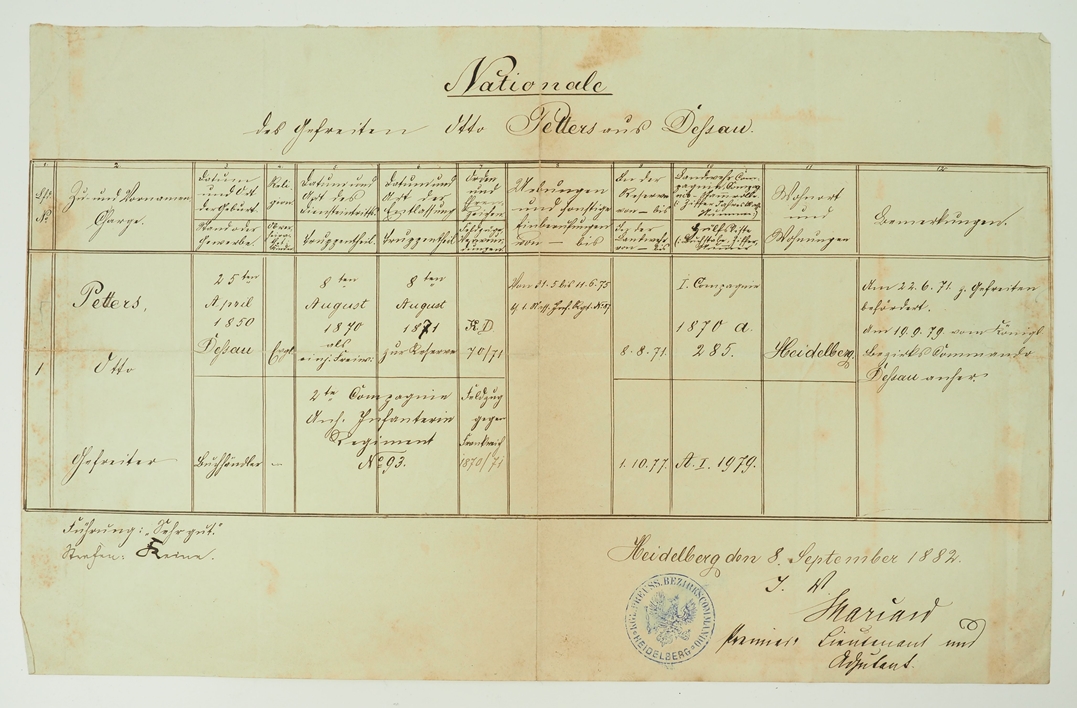 Nationale
des Gefreiten Otto Petters aus Dessau.
1. 2. 3. 4. 5. 6. 7. 8. 9. 10. 11. 12.
Lfde No
Zu- und Vornamen
Charge.
Datum
und Ort
der Geburt.
Stand oder
Gewerbe.
Reli-
gion
Datum und
Art des
Diensteintritts.
Truppentheil.
Datum und
Art der
Entlassung
Truppentheil.
Orden
und
Ehren-
zeichen
Uebungen
und sonstige
Einberufungen
von — bis
In der
Reserve
von — bis
In der
Landwehr
von — bis
Landwehr Com-
pagnie
Hülfsliste
Wohnort
und
Wohnungen
Bemerkungen.
1
Petters,
Otto
Gefreiter
25ten
April
1850
Dessau
Buchhändler
Evgl.
8ten
August
1870
als
einj. Freiw:
8ten
August
1871
zur Reserve
2te Compagnie
Anh. Infanterie
Regiment
No 93.
K.D.
70/71
Feldzug
gegen
Frankreich
1870/71
Von 31.5 bis 11.6.75
8.8.71.
1.10.77.
I. Compagnie
1870 a.
285.
A.I. 1979.
Heidelberg.
Am 22.6.71 z. Gefreiten
befördert.
Am 19.9.79. vom Königl.
Bezirks Commando
Dessau anher.
Führung: "Sehr gut."
Strafen: Keine.
Heidelberg den 8. September 1882.
I. V.
Premier Lieutenant und
Adjutant.
KGL. PREUSS. BEZIRKSCOMMANDO
HEIDELBERG